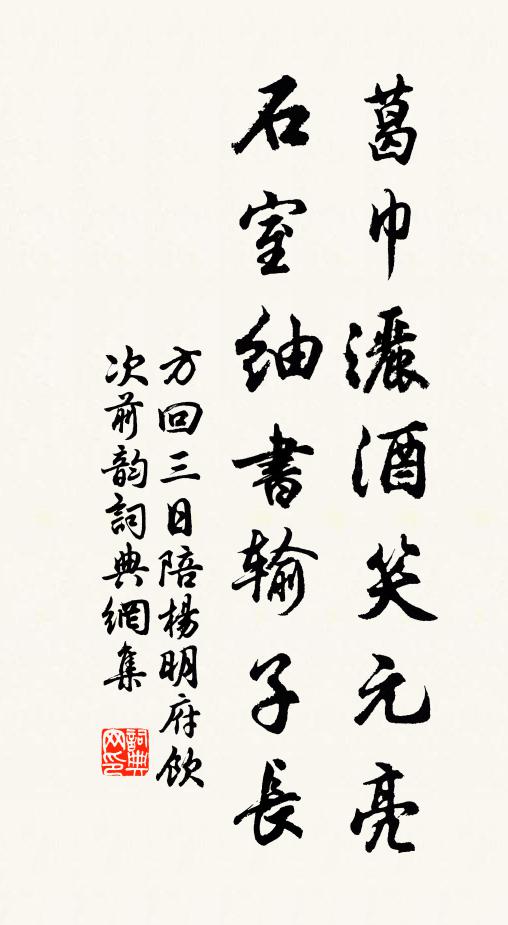 葛巾灑酒笑元亮
石室紬書輸子長
方回三日陪楊明府飲
次前韵詞典網集
詞典网印